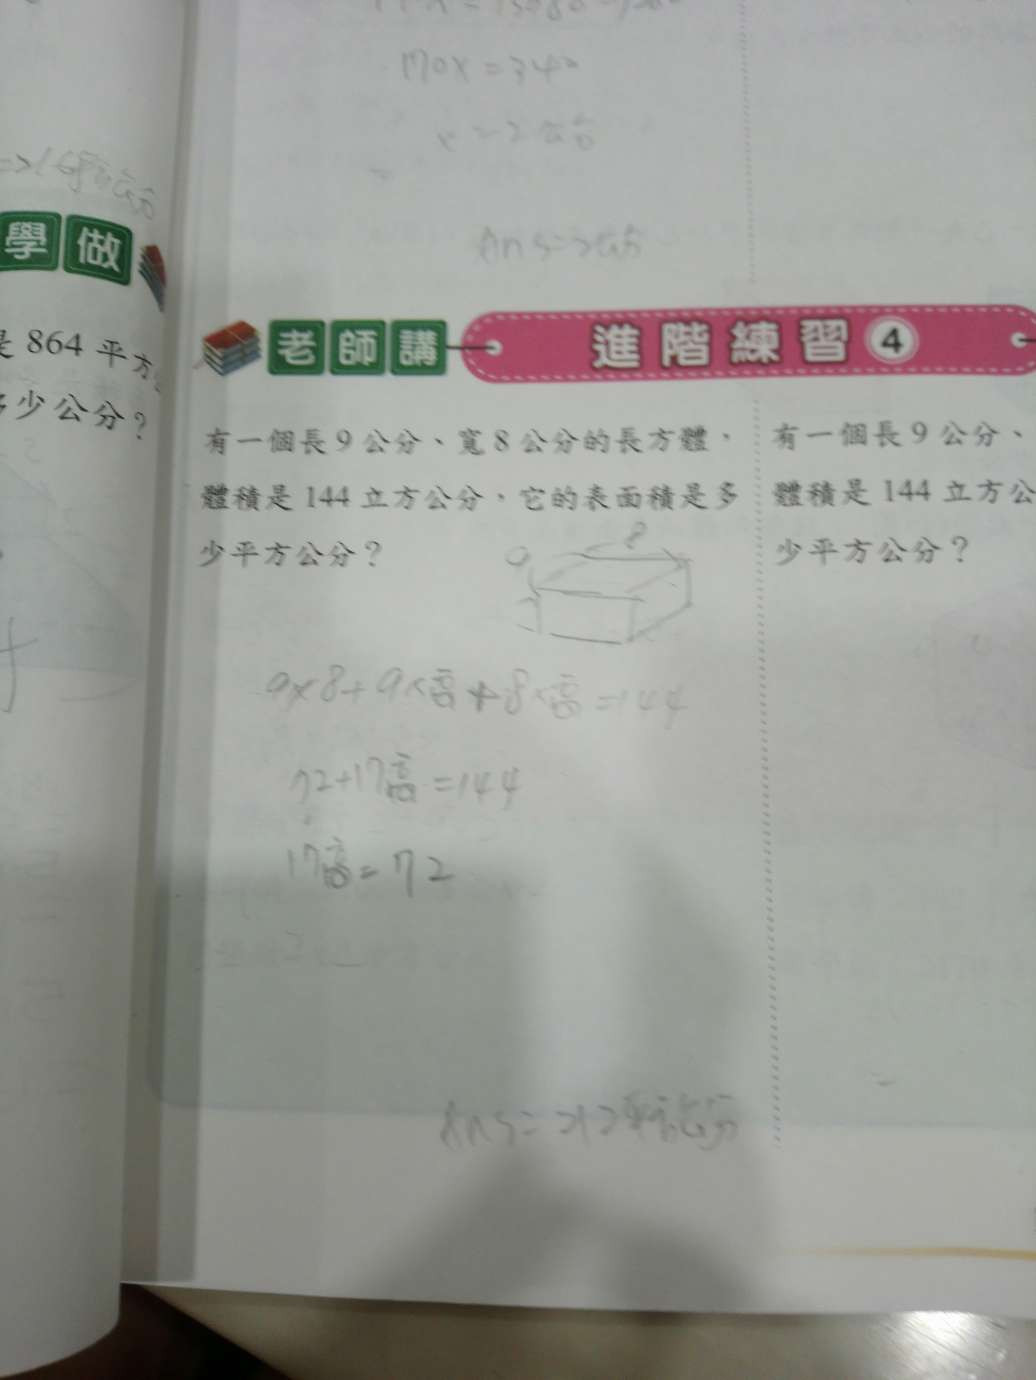 170x=34²
Ans=2公分
學做
是 864 平方
多少公分？
老師講 進階練習 4
有一個長 9 公分、寬 8 公分的長方體，
體積是 144 立方公分，它的表面積是多
少平方公分？
8
9
9×8+9×高+8×高=144
72+17高=144
17高=72
Ans=212平方公分
有一個長 9 公分、
體積是 144 立方公
少平方公分？